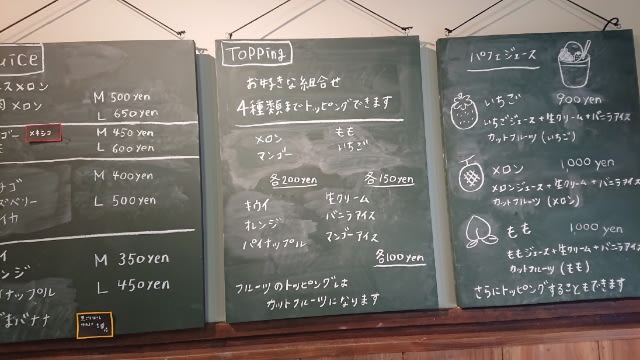 uice
スメロン
肉メロン
M 500yen
L 650yen
ゴー メキシコ
M 450yen
L 600yen
M 400yen
L 500yen
M 350yen
L 450yen
バナナ
Topping
お好きな組合せ
4種類までトッピングできます
メロン もも
マンゴー いちご
各200yen 各150yen
キウイ 生クリーム
オレンジ バニラアイス
パイナップル マンゴーアイス
各100yen
フルーツのトッピングは
カットフルーツになります
パフェジュース
いちご 900yen
いちごジュース+生クリーム+バニラアイス
カットフルーツ(いちご)
メロン 1,000yen
メロンジュース+生クリーム+バニラアイス
カットフルーツ(メロン)
もも 1000yen
ももジュース+生クリーム+バニラアイス
カットフルーツ(もも)
さらにトッピングすることもできます